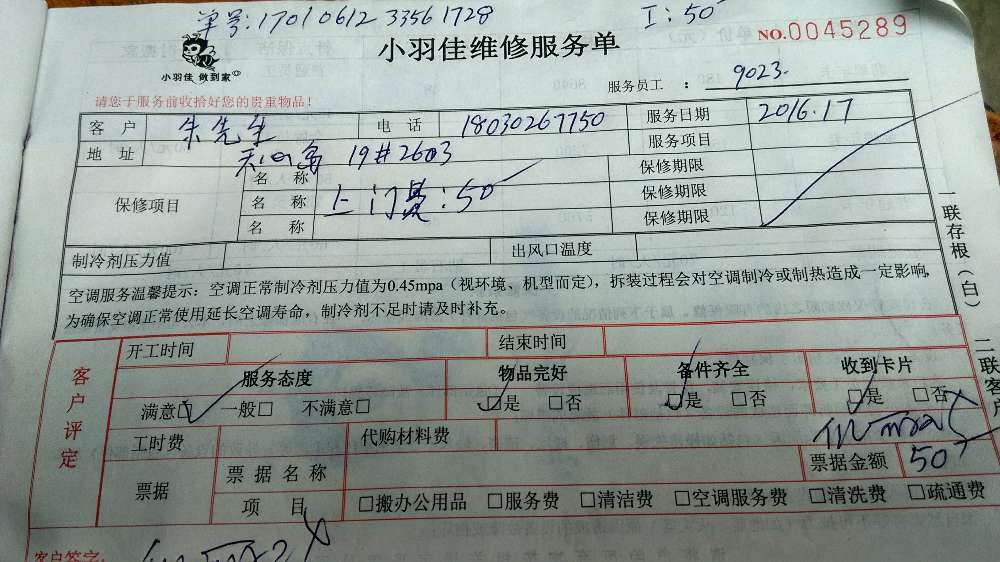 单号:17010612 33561728 I:50
小羽佳维修服务单 NO.0045289
小羽佳 做到家
服务员工 : 9023.
请您于服务前收拾好您的贵重物品!
客户 朱先生 电话 18030267750 服务日期 2016.17
地址 19#2603 服务项目
保修项目 名称 保修期限
名称 上门费:50 保修期限
名称 保修期限
制冷剂压力值 出风口温度
空调服务温馨提示:空调正常制冷剂压力值为0.45mpa(视环境、机型而定),拆装过程会对空调制冷或制热造成一定影响,
为确保空调正常使用延长空调寿命,制冷剂不足时请及时补充。
一联存根(白)
二联客户
客户评定 开工时间 结束时间
服务态度 物品完好 备件齐全 收到卡片
满意□ 一般□ 不满意□ □是 □否 □是 □否 □是 □否
工时费 代购材料费
票据 票据名称 票据金额 50
项目 □搬办公用品 □服务费 □清洁费 □空调服务费 □清洗费 □疏通费
客户签字: